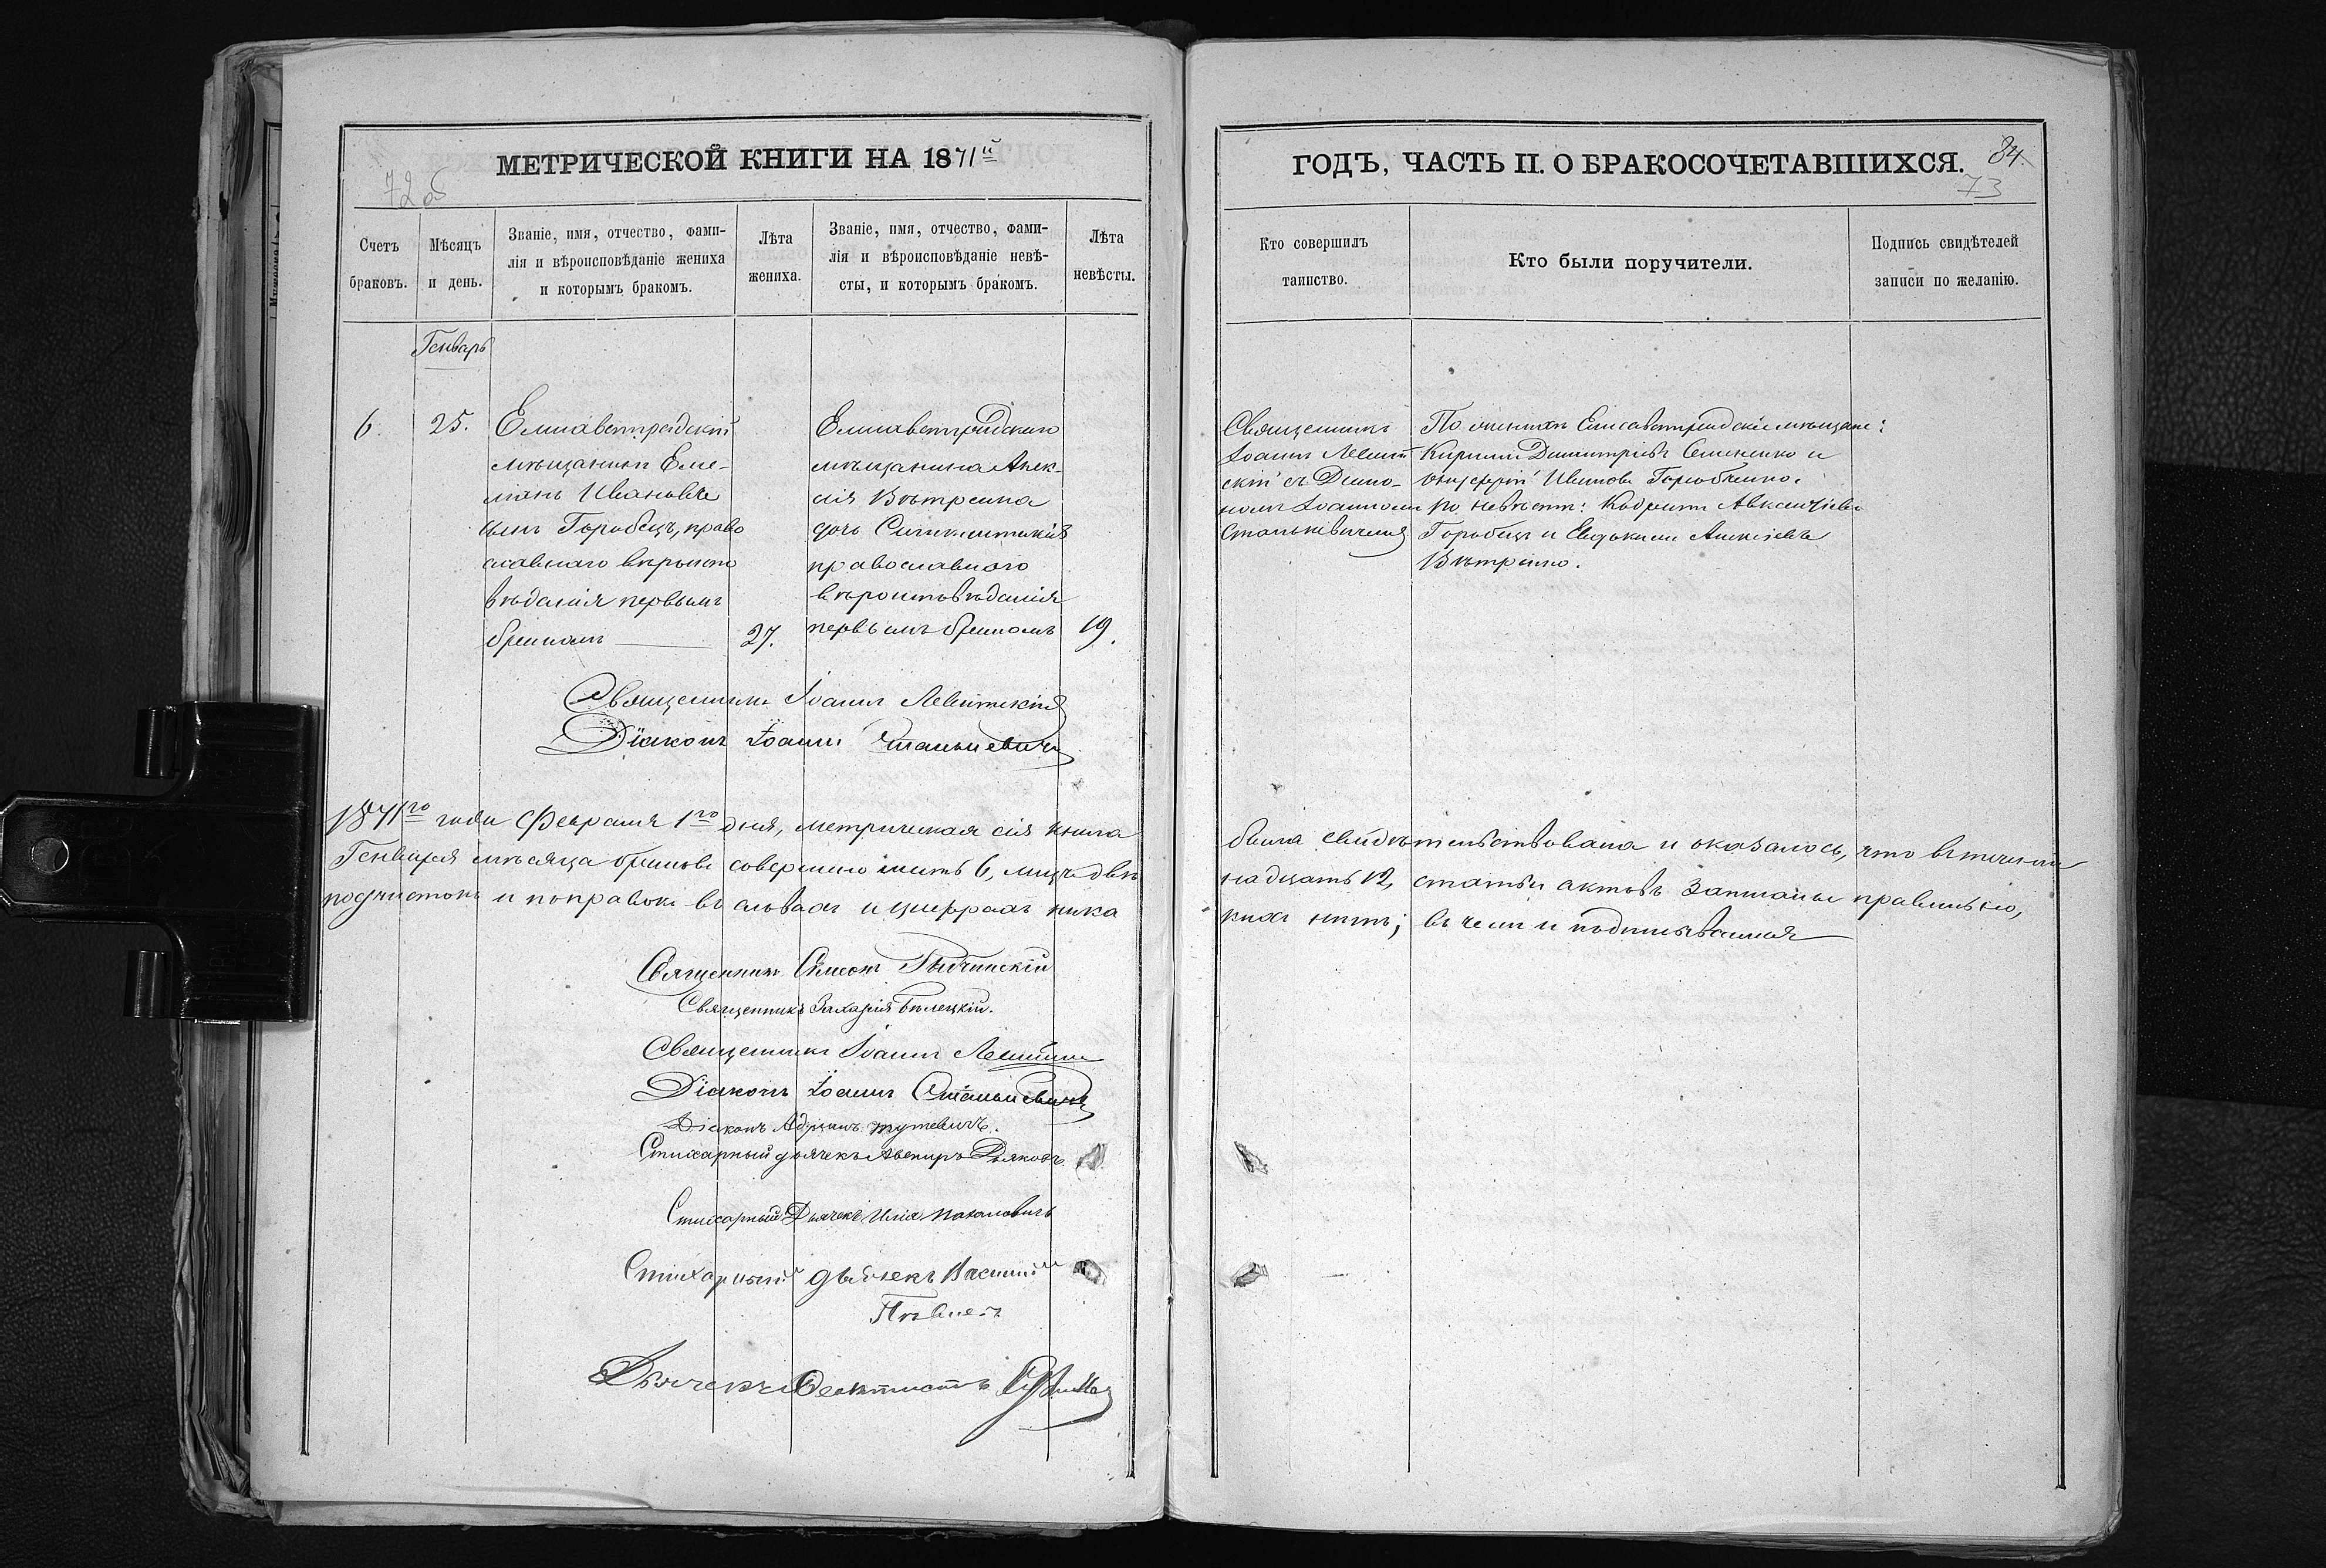 МЕТРИЧЕСКОЙ КНИГИ НА 1871й
72 об
Счетъ браковъ.
Мѣсяцъ и день.
Званіе, имя, отчество, фами-
лія и вѣроисповѣданіе жениха
и которымъ бракомъ.
Лѣта жениха.
Званіе, имя, отчество, фами-
лія и вѣроисповѣданіе невѣ-
сты, и которымъ бракомъ.
Лѣта невѣсты.
Генварь
6.
25.
Елисаветградскій
мѣщанинъ Еме-
ліанъ Ивановъ
сынъ Горобецъ, право
славнаго вѣроиспо
вѣданія первымъ
бракомъ
27.
Елисаветградскаго
мѣщанина Алек-
сія Вѣтренка
дочь Синклитикія
православнаго
вѣроисповѣданія
первымъ бракомъ
19.
Священникъ Іоаннъ Левитскій
Діаконъ Іоаннъ Станкевичъ
1871го года Февраля 1го дня, метрическая сія книга
Генваря мѣсяца браковъ совершено шесть 6, лицъ двѣ
подчистокъ и поправокъ въ словахъ и цифрахъ ника
Священникъ Симеонъ
Священникъ Захарія Бѣлецкій.
Священникъ Іоаннъ Левитскій
Діаконъ Іоаннъ Станкевичъ
Діаконъ Адріанъ
Стихарный дьячекъ Авениръ Дьяковъ
Стихарный Дьячекъ Илія
Стихарный дьячекъ Василій
Дьячекъ Феоктистъ
ГОДЪ, ЧАСТЬ II. О БРАКОСОЧЕТАВШИХСЯ.
84.
73
Кто совершилъ таинство.
Кто были поручители.
Подпись свидѣтелей записи по желанію.
Священникъ
Іоаннъ Левит
скій съ Діако-
номъ Іоанномъ
Станкевичемъ
По женихѣ Елисаветградскіе мѣщане:
Кириллъ Димитріевъ Семененко и
Онуфрій Ивановъ Горобченко.
по невѣстѣ: Кодратъ Авксентіевъ
Горобецъ и Евдокимъ Алексіевъ
Вѣтренко.
была свидѣтельствована и оказалось, что въ теченіи
надцать 12, статьи актовъ записаны правильно,
кихъ нѣтъ; въ чемъ и подписываемся